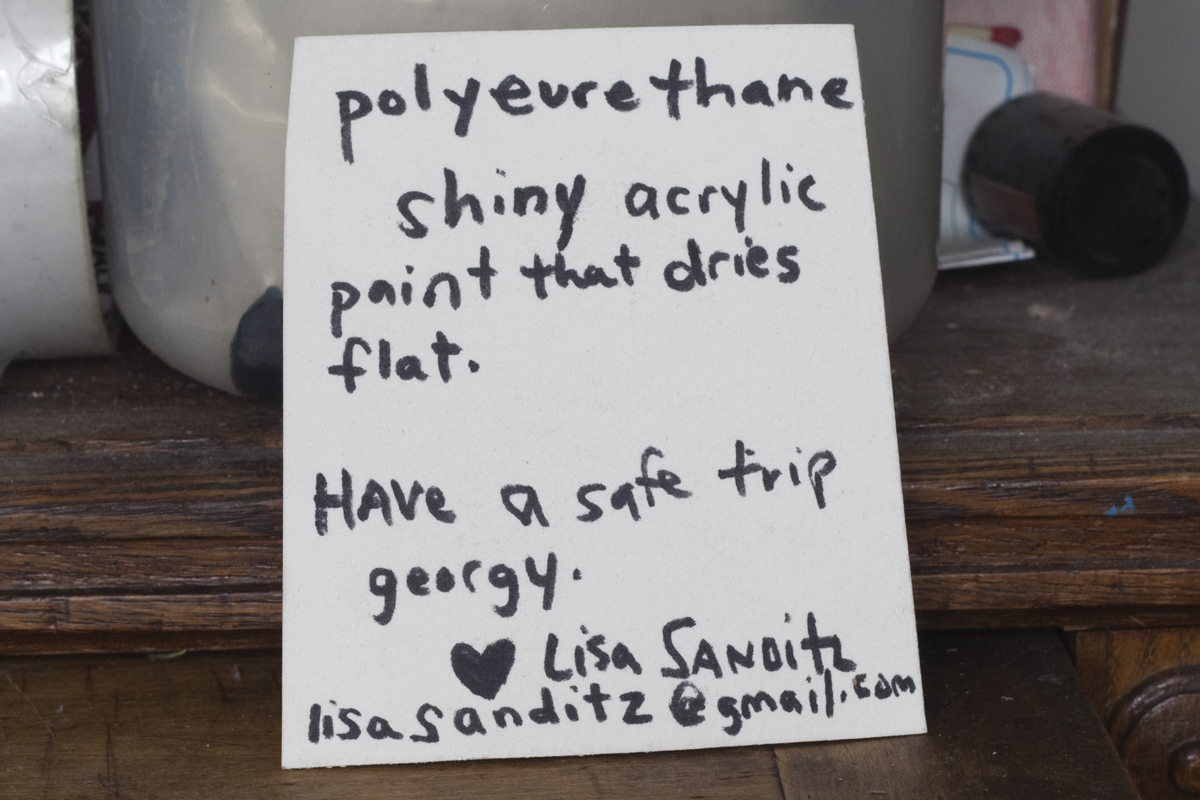 polyeurethane
shiny acrylic
paint that dries
flat.
HAVe a safe trip
georgy.
♥ Lisa SANDitz
lisasanditz@gmail.com